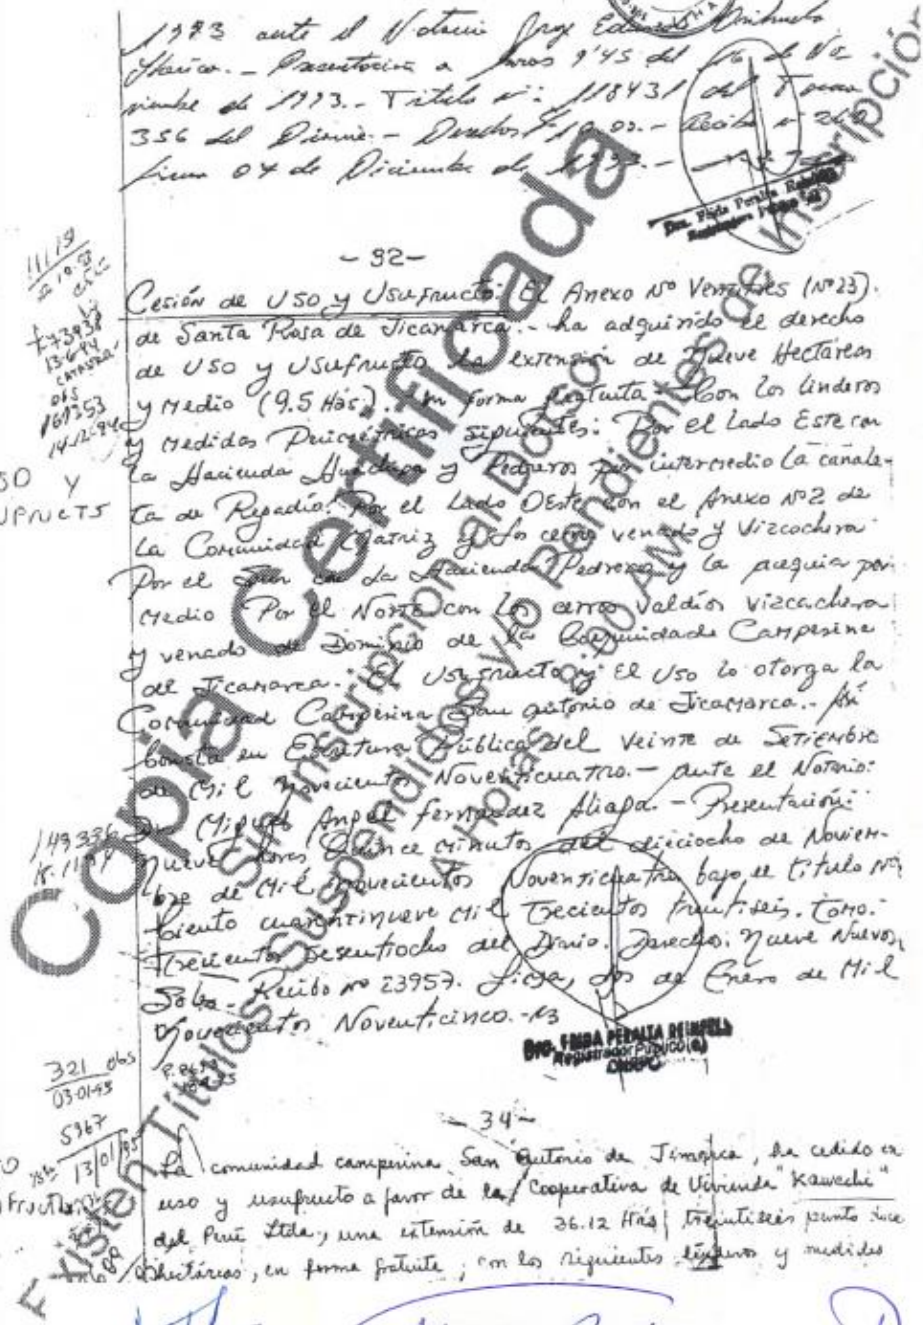 1993 ante el Notario Jorge Eduardo Orihuela
Iberico. - Presentación a horas 9'45 del 16 de No-
viembre de 1993. - Título nº: 118431 del Tomo
356 del Diario. - Derechos 19.00. - Recibo nº
Lima 07 de Diciembre de 1993. -
Dra. Peralta
Registradora
- 32 -
Cesión de USO y Usufructo: El Anexo Nº Ventitres (Nº23).
de Santa Rosa de Jicamarca. - ha adquirido el derecho
de USO y Usufructo la extensión de Nueve Hectáreas
y Medio (9.5 Hás). en forma gratuita Con los linderos
y Medidas Perimétricas siguientes: Por el Lado Este con
la Hacienda Huachipa y Pedreros por intermedio la canale-
ta de Regadío. Por el Lado Oeste con el Anexo Nº2 de
La Comunidad Matriz y los cerros venado y Vizcachera
Por el Sur con La Hacienda Pedreros y la acequia por
Medio Por el Norte con los cerros Valdíos vizcachera
y venado de Dominio de la Comunidade Campesina
de Jicamarca. El usufructo y El uso lo otorga la
Comunidad Campesina San Antonio de Jicamarca. - Así
Consta en Escritura Pública del veinte de Setiembre
de Mil Novecientos Noventicuatro. - ante el Notario:
Dr. Miguel Angel Fernandez Aliaga. - Presentación:
Nueve horas Quince minutos del dieciocho de Noviem-
bre de Mil novecientos Noventicuatro bajo el título Nº:
Ciento cuarentinueve Mil Trecientos treintiseis. Tomo:
Trecientos sesentiocho del Diario. Derecho: Nueve Nuevos
Soles. Recibo nº 23957. Lima, dos de Enero de Mil
Novecientos Noventicinco. -
Dra. PERALTA
Registrador Público(a)
11119
t-73938
13-6-94
obs
161353
14-12-94
USO Y
149336
321 obs
03-01-95
5967
13/01/95
- 34 -
La comunidad campesina San Antonio de , ha cedido en
uso y usufructo a favor de la Cooperativa de Vivienda "Kawachi"
del Perú Ltda., una extensión de 36.12 Hás treintiséis punto doce
hectáreas, en forma gratuita, con los siguientes linderos y medidas
Copia Certificada
Sin Inscripción al Dorso
Existen Títulos Suspendidos y/o Pendientes de Inscripción
A Horas : 8:00 AM